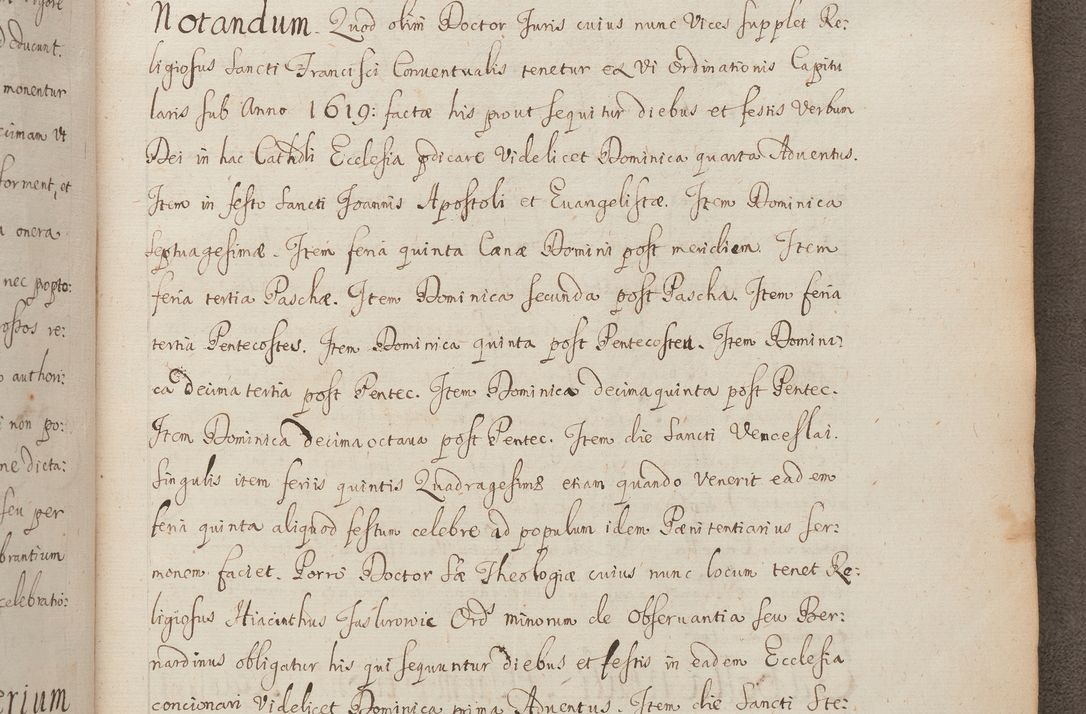 Notandum. Quod olim Doctor Juris cuius nunc Vices supplet Re:
ligiosus Sancti Francisci Conventualis tenetur ex Vi Ordinationis Capitu
laris sub Anno 1619: factæ his prout sequitur diebus et festis Verbum
Dei in hac Cathdli Ecclesia pdicare Videlicet Dominica quarta Adventus.
Item in festo Sancti Joannis Apostoli et Evangelistæ. Item Dominica
Septuagesimæ. Item feria quinta Cænæ Domini post meridiem. Item
feria tertia Paschæ. Item Dominica secunda post Pascha. Item feria
tertia Pentecostes. Item Dominica quinta post Pentecosten. Item Domini:
ca decima tertia post Pentec. Item Dominica decima quinta post Pentec.
Item Dominica decima octava post Pentec. Item die Sancti Venceslai.
Singulis item feriis quintis Quadragesimæ etiam quando Venerit eadem
feria quinta aliquod festum celebre ad populum idem Pænitentiarius Ser:
monem faciet. Porro Doctor Sæ Theologiæ cuius nunc locum tenet Re:
ligiosus Hiacinthus Ordis minorum de Observantia seu Ber:
nardinus obligatur his qui sequuntur diebus et festis in eadem Ecclesia
concionari Videlicet Dominica prima Adventus. Item die Sancti Ste:
d educunt.
monentur
cimam Ut
forment, et
a onera
nec popto:
re:
authori:
non po:
ne dicta:
seu per
brantium
celebratio:
erium